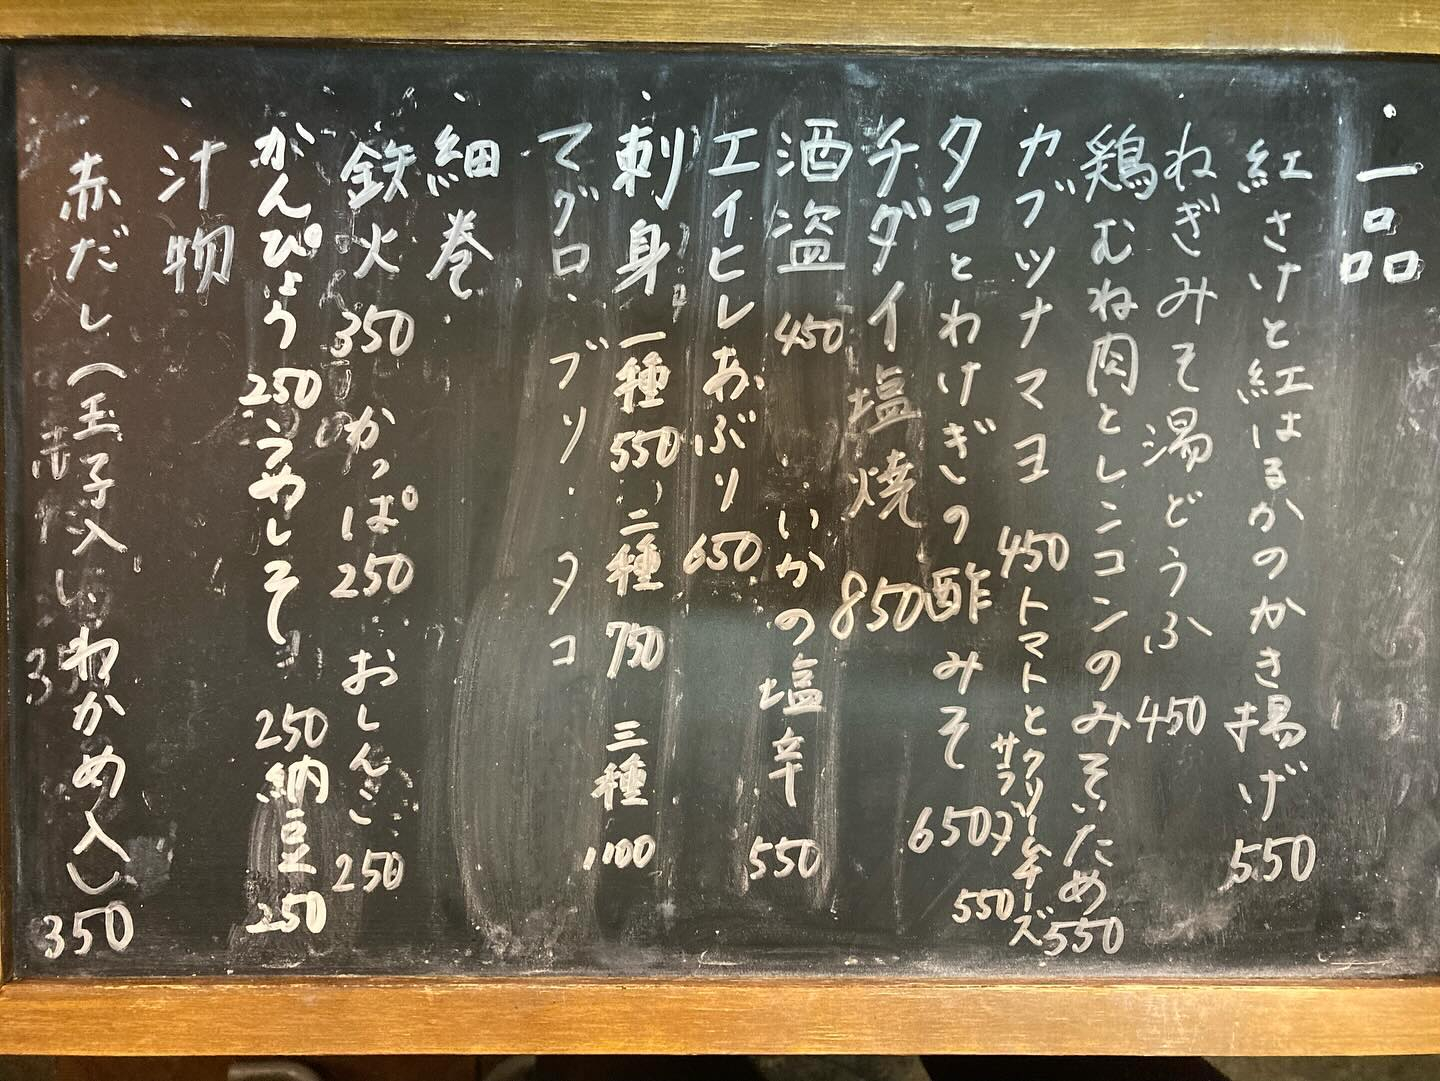 ・一品
紅さけと紅はるかのかき揚げ 550
ねぎみそ湯どうふ 450
鶏むね肉とレンコンのみそいため 550
カブツナマヨ 450 トマトとクリームチーズ
サラダ 550
タコとわけぎの酢みそ 650
チダイ塩焼 850
酒盗 450 いかの塩辛 550
エイヒレあぶり 650
・刺身 一種 550 二種 750 三種 1100
マグロ・ブリ・タコ
・細巻
鉄火 350 かっぱ 250 おしんこ 250
かんぴょう 250 うめしそ 250 納豆 250
・汁物
赤だし（玉子入り、わかめ入り） 350